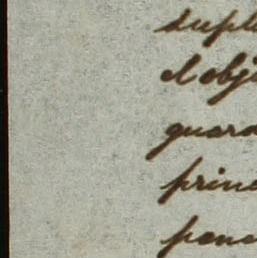 dupl
el obj
guard
princ
pone